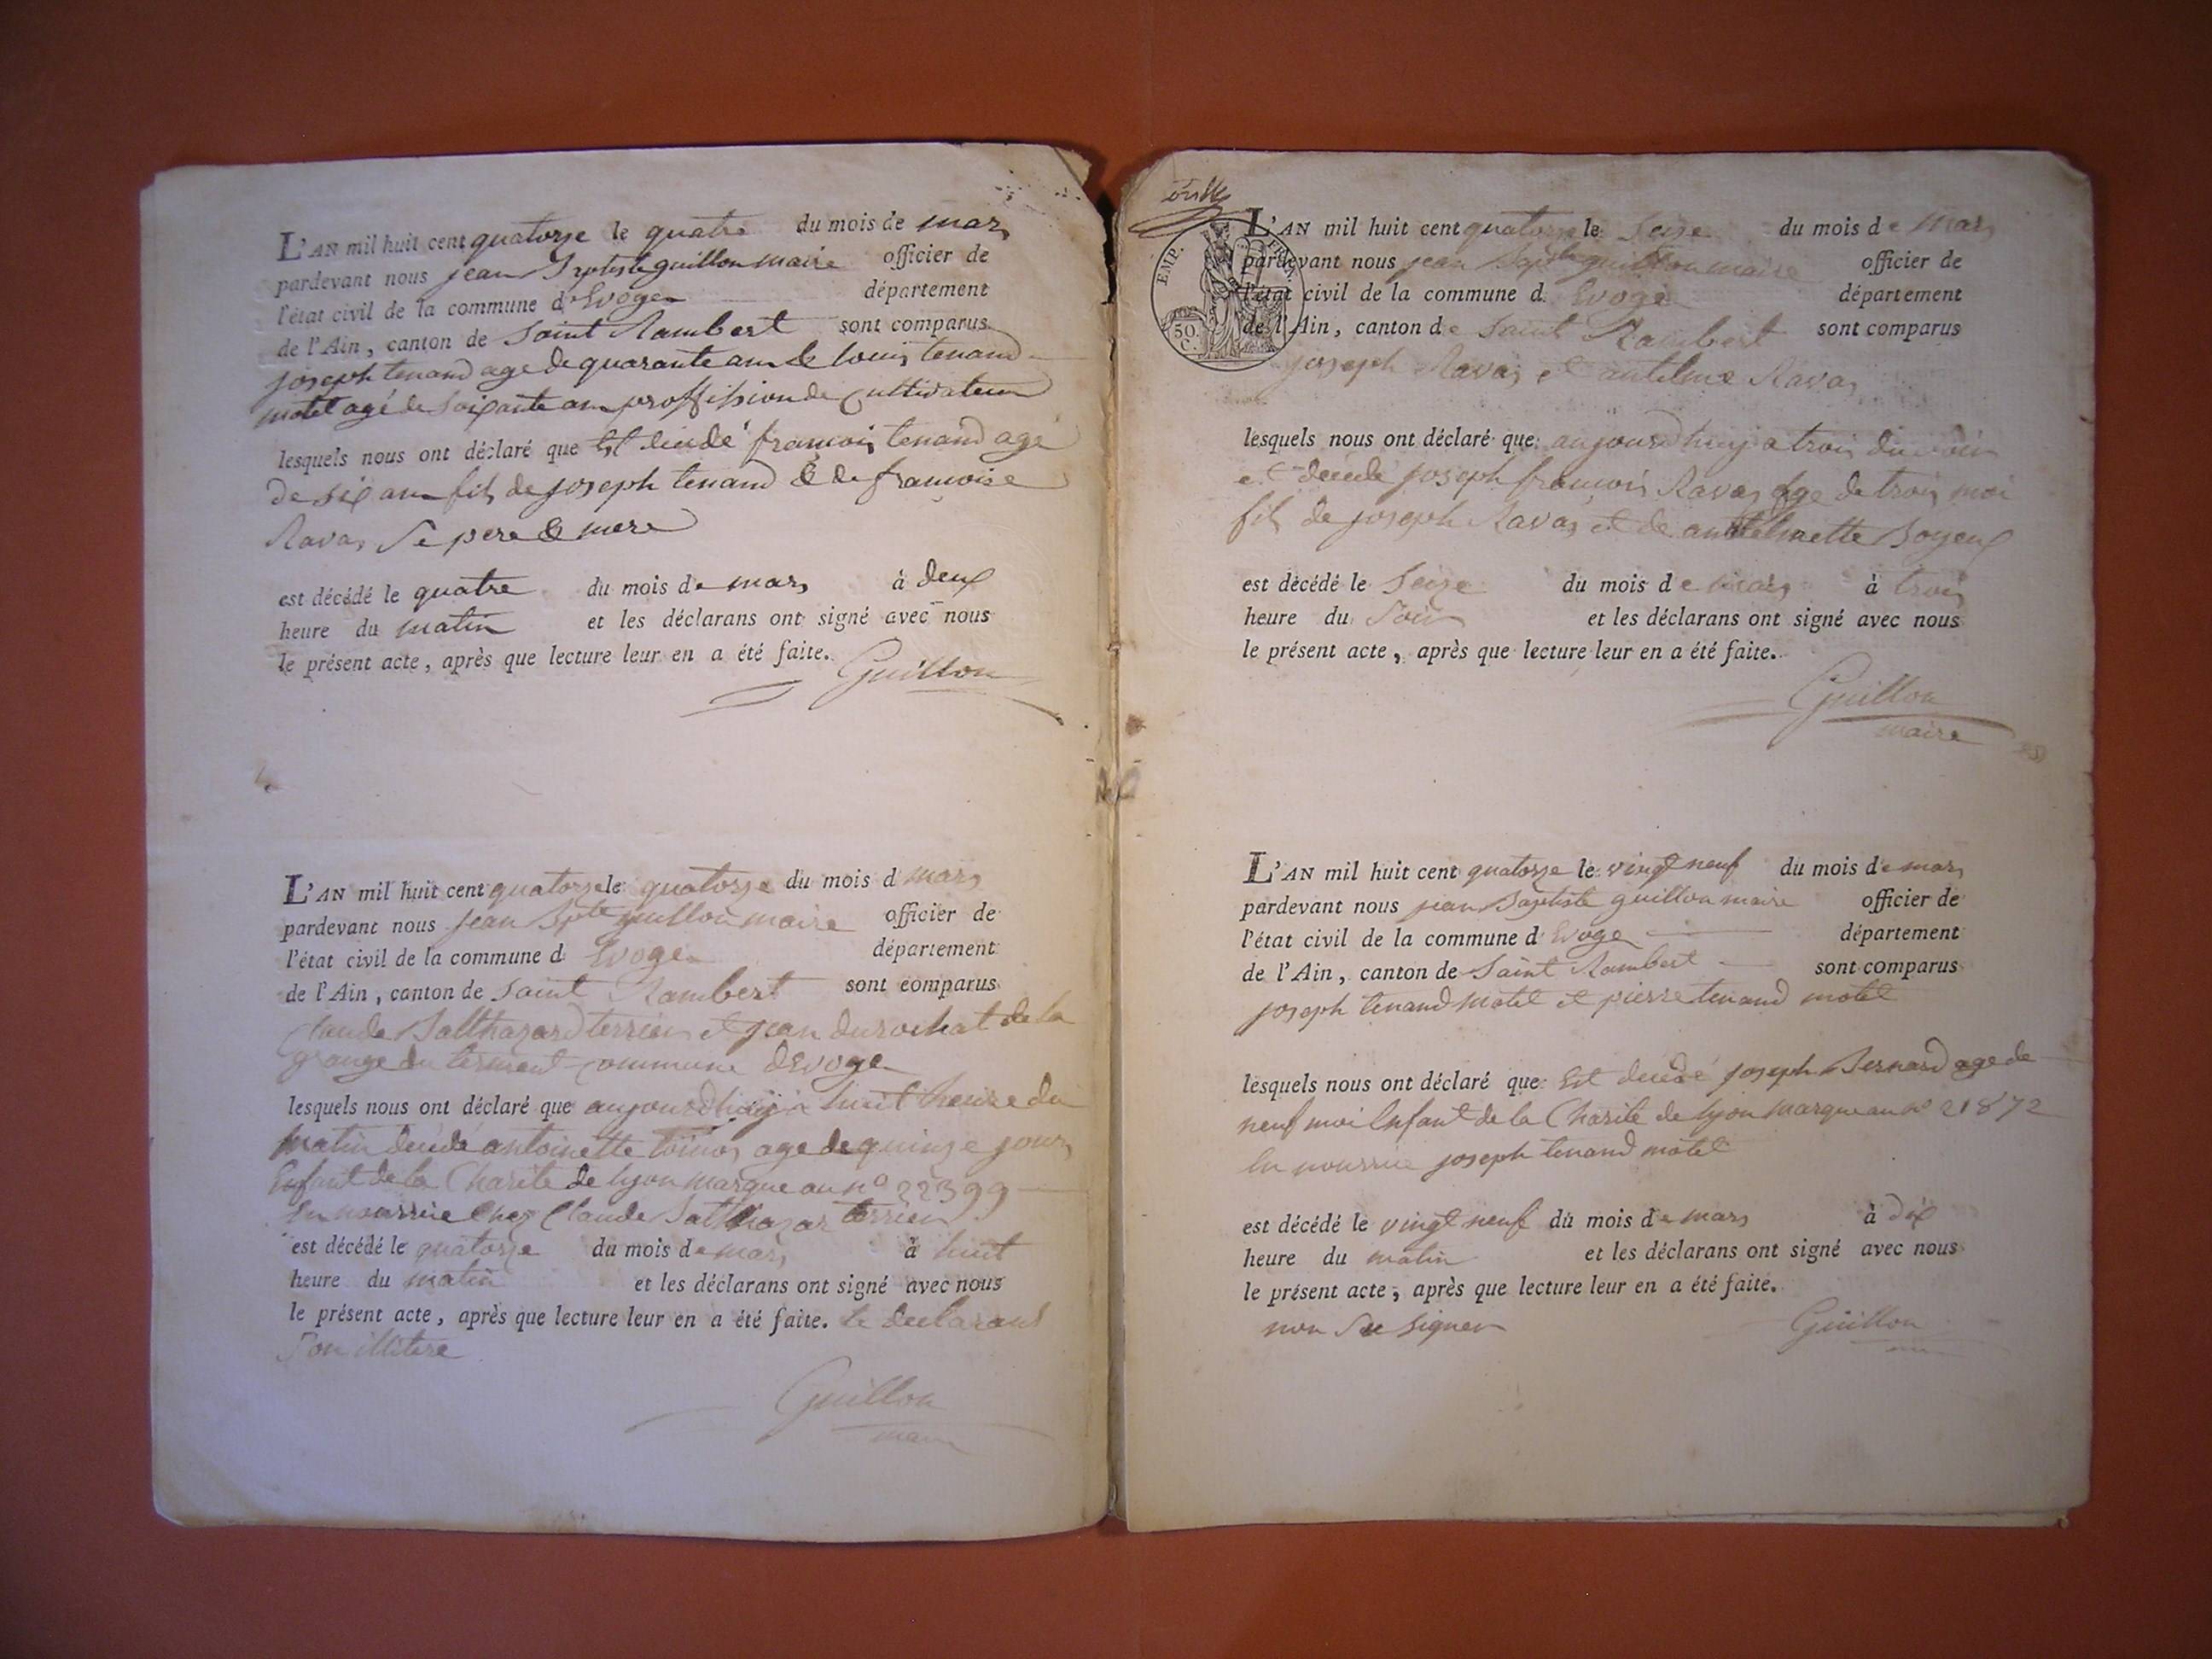 L'AN mil huit cent quatorze le quatre du mois de mars
pardevant nous jean Bptiste guillon maire officier de
l'état civil de la commune d'Evoge département
de l'Ain, canton de Saint Rambert sont comparus
joseph tenand age de quarante an & louis tenand
motet agé de soixante an proffission de cultivateur
lesquels nous ont déclaré que Est décedé françois tenand agé
de six an fils de joseph tenand & de françoise
Ravas Se pere & mere
est décédé le quatre du mois de mars à deux
heure du matin et les déclarans ont signé avec nous
le présent acte, après que lecture leur en a été faite.
Guillon
L'AN mil huit cent quatorze le quatorze du mois d mars
pardevant nous jean Bpte guillon maire officier de
l'état civil de la commune d Evoge département
de l'Ain, canton de Saint Rambert sont comparus
Claude Balthazard terrier et jean durochat de la
grange du terment commune dEvoge
lesquels nous ont déclaré que aujourdhuy a huit heure du
matin décédé antoinette age de quinze jours
Enfant de la Charité de lyon marque au nº 22399
En nourrice Chez Claude Balthazar terrier
est décédé le quatorze du mois de mars à huit
heure du matin et les déclarans ont signé avec nous
le présent acte, après que lecture leur en a été faite. le declarans
Son illitere
Guillon
maire
EMP. FRAN.
50. C.
L'AN mil huit cent quatorze le Seize du mois de mars
pardevant nous jean Bapte guillon maire officier de
l'état civil de la commune d Evoge département
de l'Ain, canton de Saint Rambert sont comparus
joseph Ravas et antelme Ravas
lesquels nous ont déclaré que aujourdhuy a trois du soir
et décédé joseph françois Ravas age de trois moi
fils de joseph Ravas et de antelmette Boyeux
est décédé le Seize du mois de mars à trois
heure du Soir et les déclarans ont signé avec nous
le présent acte, après que lecture leur en a été faite.
Guillon
maire
L'AN mil huit cent quatorze le vingt neuf du mois de mars
pardevant nous jean Baptiste guillon maire officier de
l'état civil de la commune d Evoge département
de l'Ain, canton de Saint Rambert sont comparus
joseph tenand motet et pierre tenand motet
lesquels nous ont déclaré que Est décédé joseph Bernard age de
neuf moi Enfant de la Charité de lyon marque au nº 21872
En nourrice joseph tenand motet
est décédé le vingt neuf du mois de mars à dix
heure du matin et les déclarans ont signé avec nous
le présent acte, après que lecture leur en a été faite.
non Su signer
Guillon